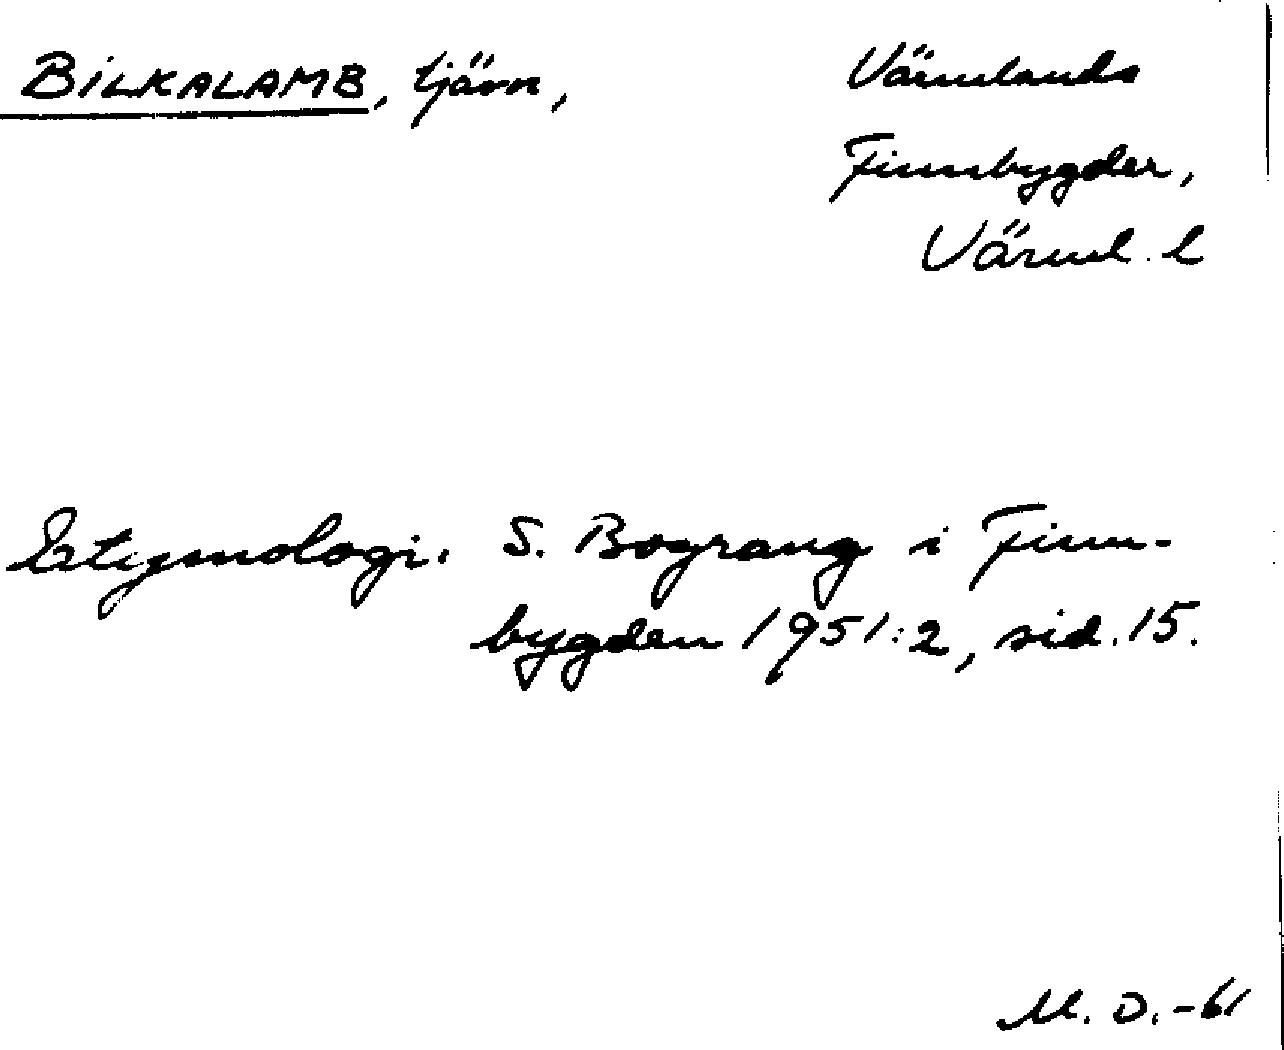 BILKALAMB, tjärn, Värmlands
Finnbygder,
Värml. l
Etymologi. S. Bograng i Finn-
bygden 1951:2, sid. 15.
M. O. -61